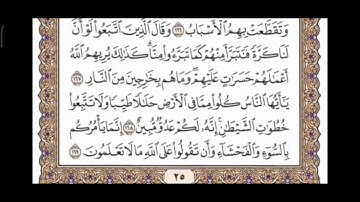 وَتَقَطَّعَتْ بِهِمُ ٱلْأَسْبَابُ ١٦٦ وَقَالَ ٱلَّذِينَ ٱتَّبَعُوا۟ لَوْ أَنَّ
لَنَا كَرَّةً فَنَتَبَرَّأَ مِنْهُمْ كَمَا تَبَرَّءُوا۟ مِنَّا ۗ كَذَٰلِكَ يُرِيهِمُ ٱللَّهُ
أَعْمَٰلَهُمْ حَسَرَٰتٍ عَلَيْهِمْ ۖ وَمَا هُم بِخَٰرِجِينَ مِنَ ٱلنَّارِ ١٦٧
يَٰٓأَيُّهَا ٱلنَّاسُ كُلُوا۟ مِمَّا فِى ٱلْأَرْضِ حَلَٰلًا طَيِّبًا وَلَا تَتَّبِعُوا۟
خُطُوَٰتِ ٱلشَّيْطَٰنِ ۚ إِنَّهُۥ لَكُمْ عَدُوٌّ مُّبِينٌ ١٦٨ إِنَّمَا يَأْمُرُكُم
بِٱلسُّوٓءِ وَٱلْفَحْشَآءِ وَأَن تَقُولُوا۟ عَلَى ٱللَّهِ مَا لَا تَعْلَمُونَ ١٦٩
٢٥